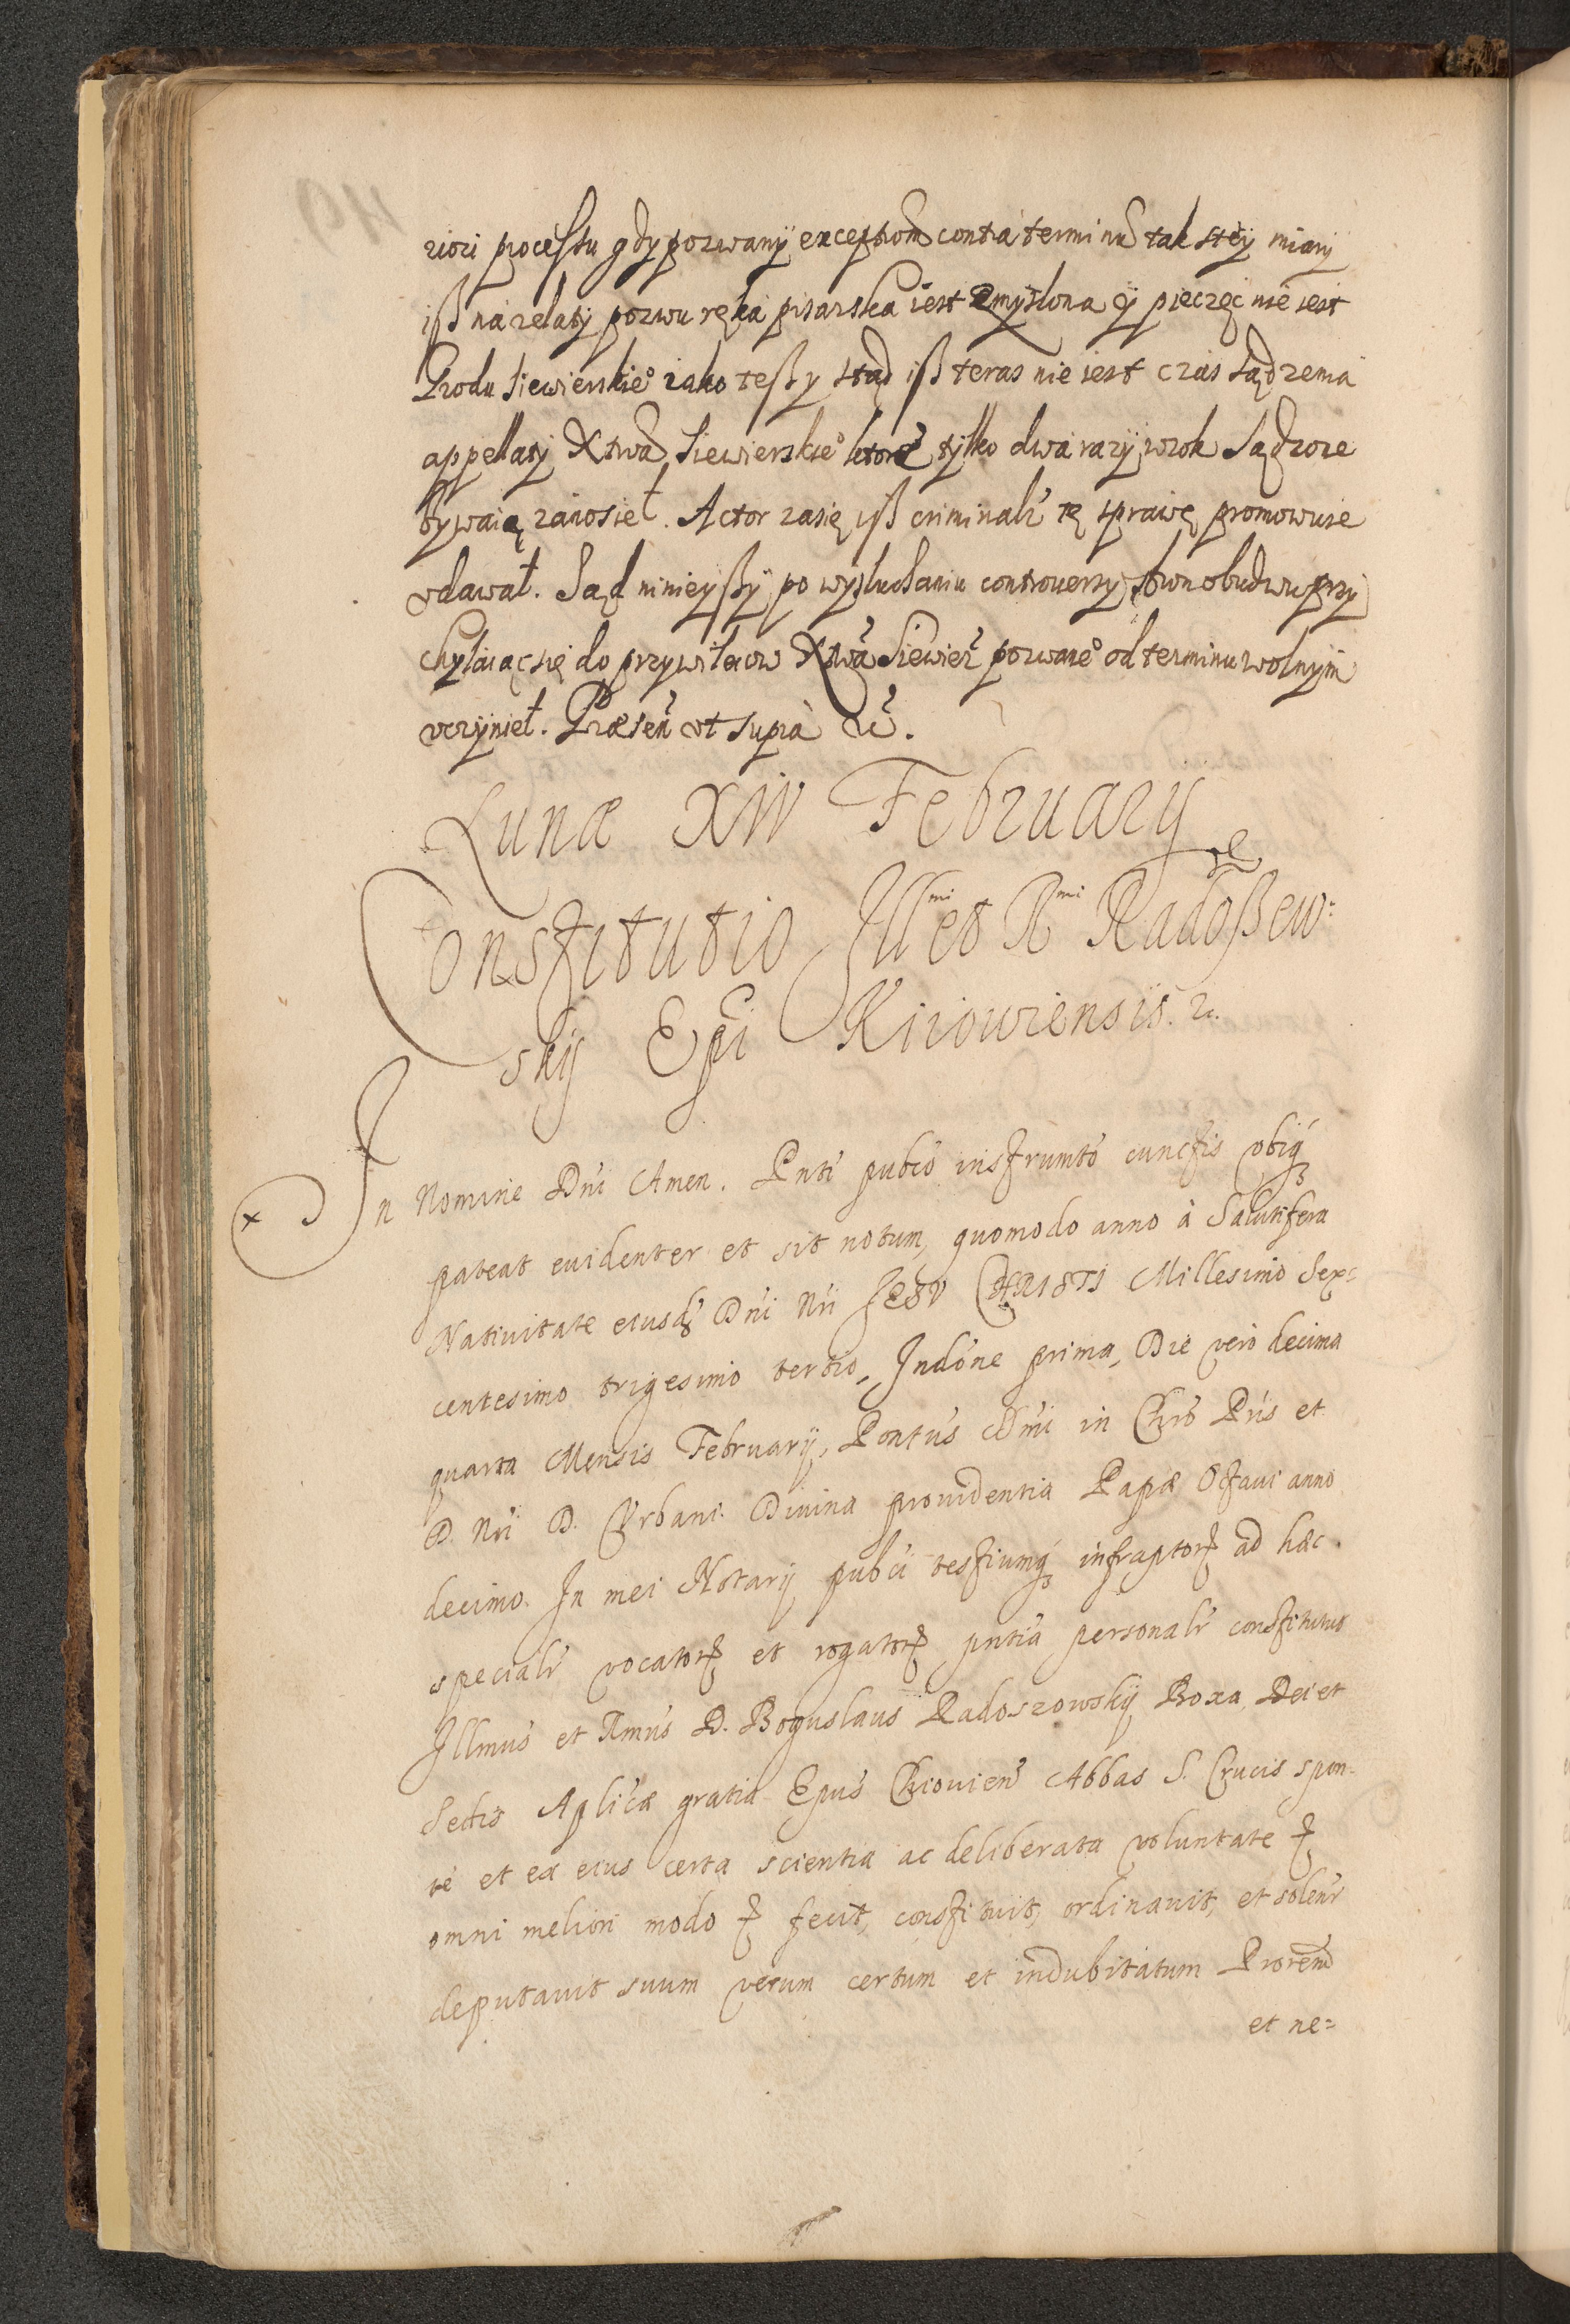 riori processu gdy pozwany exceptiom contra terminũ tak stey miary
iß na relaty pozwu ręka pisarska iest zmyslona y pieczęc nie iest
Grodu Siewierskie° iako teßz y stąd iß teras nie iest czas sądzenia
appellaty Xtwa Siewierskie° ktore tylko dwa razy wrok sądzone
bywaią zanosieł. Actor zasię iß criminalr tę sprawę promowuie
vdawał. Sąd ninieyßy po wysłuchaniu controuersy stron obudwu przy
chylaiąc się do przywileiow Xtwa Siewier pozwane° od terminu wolnym
vczynieł. Præsen vt supra &c.
Lunæ XIV February
Constitutio Ill<sup>mi</sup> et R<sup>mi</sup> Radoßew:
skij Epi Kiiouiensis. &.
In Nomine Dni Amen. Pnti pubco instrumto cunctis vbiq
pateat euidenter et sit notum, quomodo anno à Salutifera
Natiuitate eiusd Dni Nri JESV CHRISTI Millesimo Sex=
centesimo trigesimo tertio, Indóne prima, Die vero decima
quarta Mensis February, Pontus Dmi in Chro Pris et
D. Nri D. Vrbani Diuina prouidentia Papæ Octaui anno
decimo. In mei Notary pubci testiumq infraptor ad hæc
specialr vocator et rogator pntia personalr constitutus
Illmus et Rmus D. Boguslaus Radoszowsky Boxa Dei et
Sedis Aplicæ gratia Epus Chiouien Abbas S. Crucis spon-
te et ex eius certa scientia ac deliberata voluntate
omni meliori modo fecit, constituit, ordinauit, et solenr
deputauit suum verum certum et indubitatum Prorem
et ne=